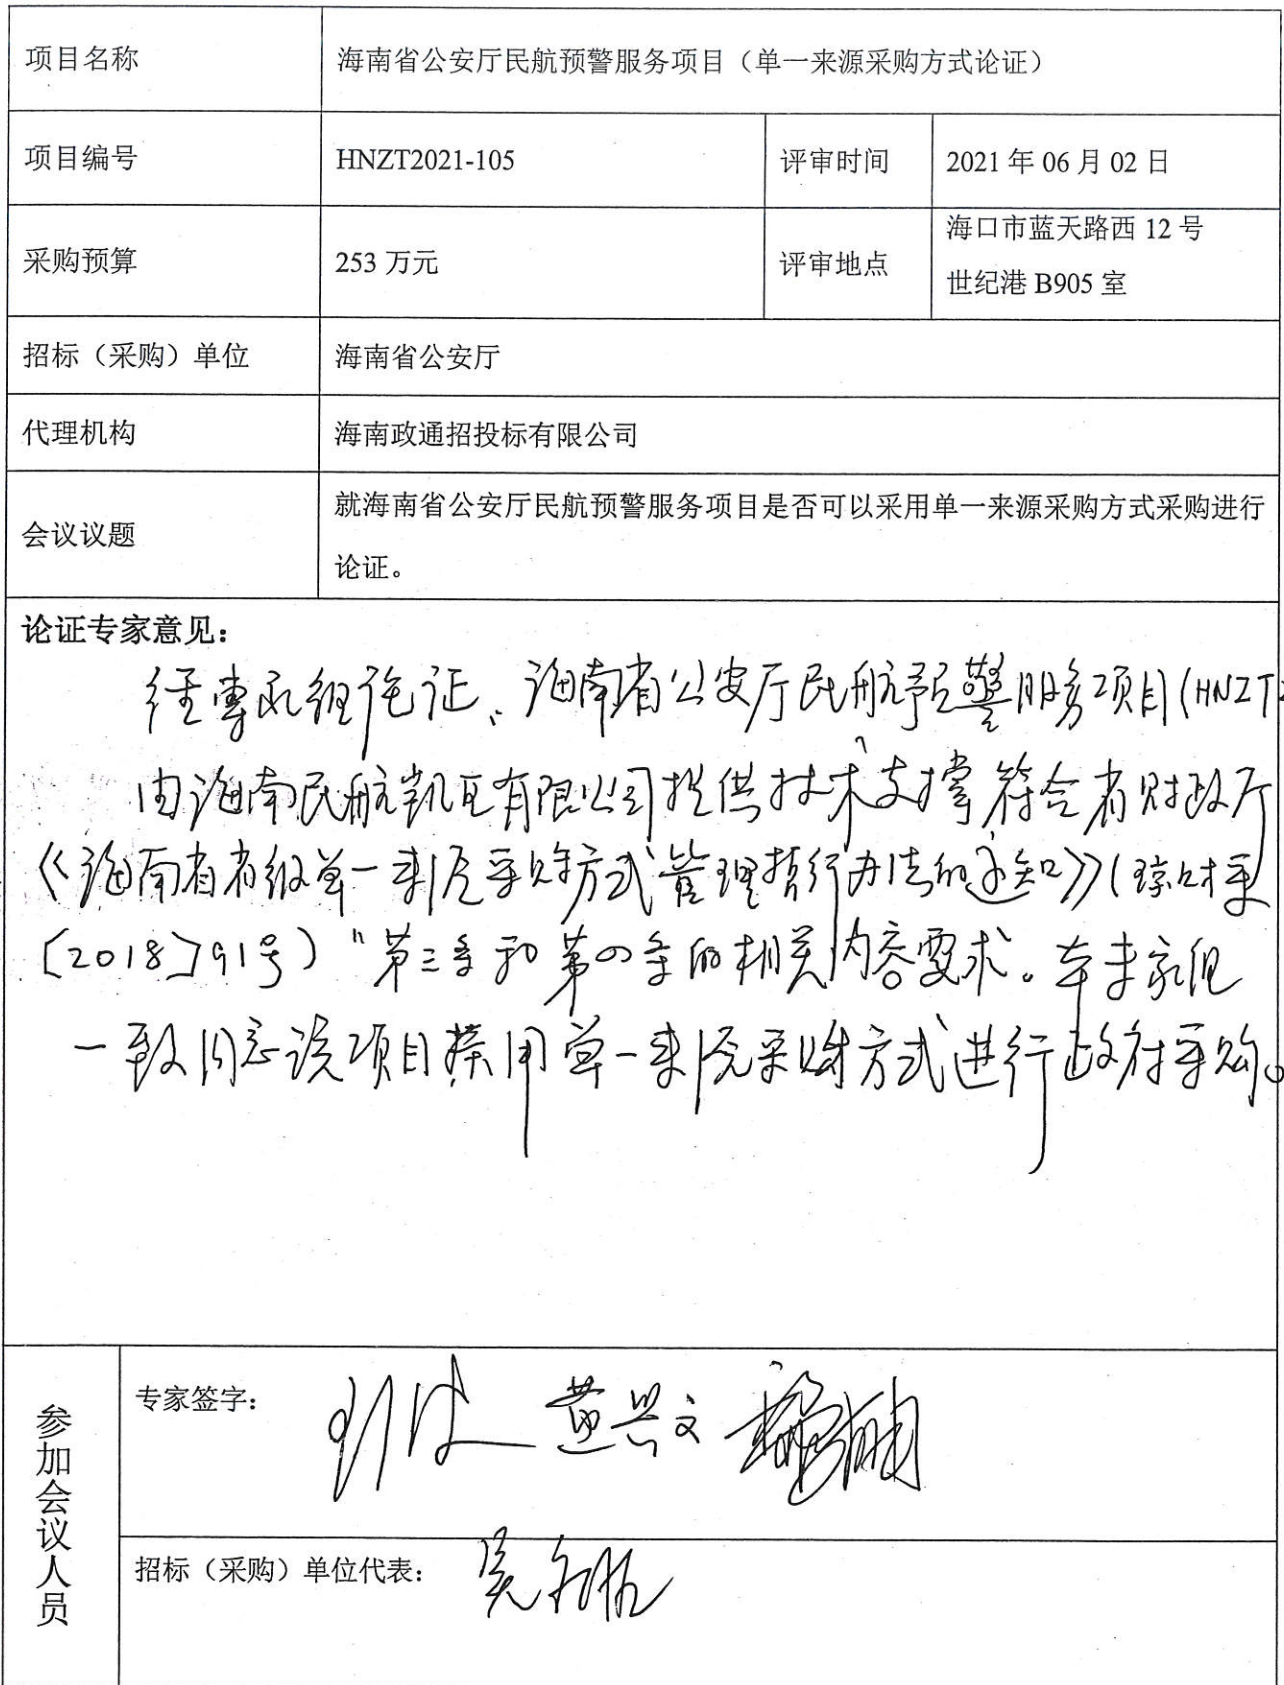 项目名称 海南省公安厅民航预警服务项目（单一来源采购方式论证）
项目编号 HNZT2021-105 评审时间 2021 年 06 月 02 日
采购预算 253 万元 评审地点 海口市蓝天路西 12 号
世纪港 B905 室
招标（采购）单位 海南省公安厅
代理机构 海南政通招投标有限公司
会议议题 就海南省公安厅民航预警服务项目是否可以采用单一来源采购方式采购进行
论证。
论证专家意见：
经专家组论证、海南省公安厅民航预警服务项目(HNZT
由海南民航凯亚有限公司提供技术支撑符合省财政厅
《海南省省级单一来源采购方式管理暂行办法的通知》(琼财采
〔2018〕91号)"第三条和第四条的相关内容要求。本专家组
一致同意该项目采用单一来源采购方式进行政府采购。
参加会议人员
专家签字： 黄兴文
招标（采购）单位代表： 吴